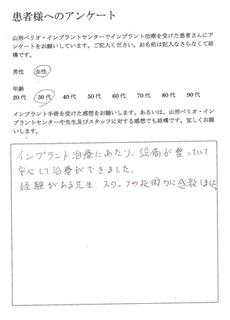 患者様へのアンケート
山形ペリオ・インプラントセンターでインプラント治療を受けた患者さんにア
ンケートをお願いしています。ご記入ください。お名前は記入なさらなくて結
構です。
男性 女性
年齢
20代 30代 40代 50代 60代 70代 80代 90代
インプラント手術を受けた感想をお願いします。あるいは、山形ペリオ・イン
プラントセンターや先生及びスタッフに対する感想でも結構です。宜しくお願
いします。
インプラント治療にあたり、設備が整っていて
安心して治療ができました。
経験がある先生、スタッフの技術力に感謝します